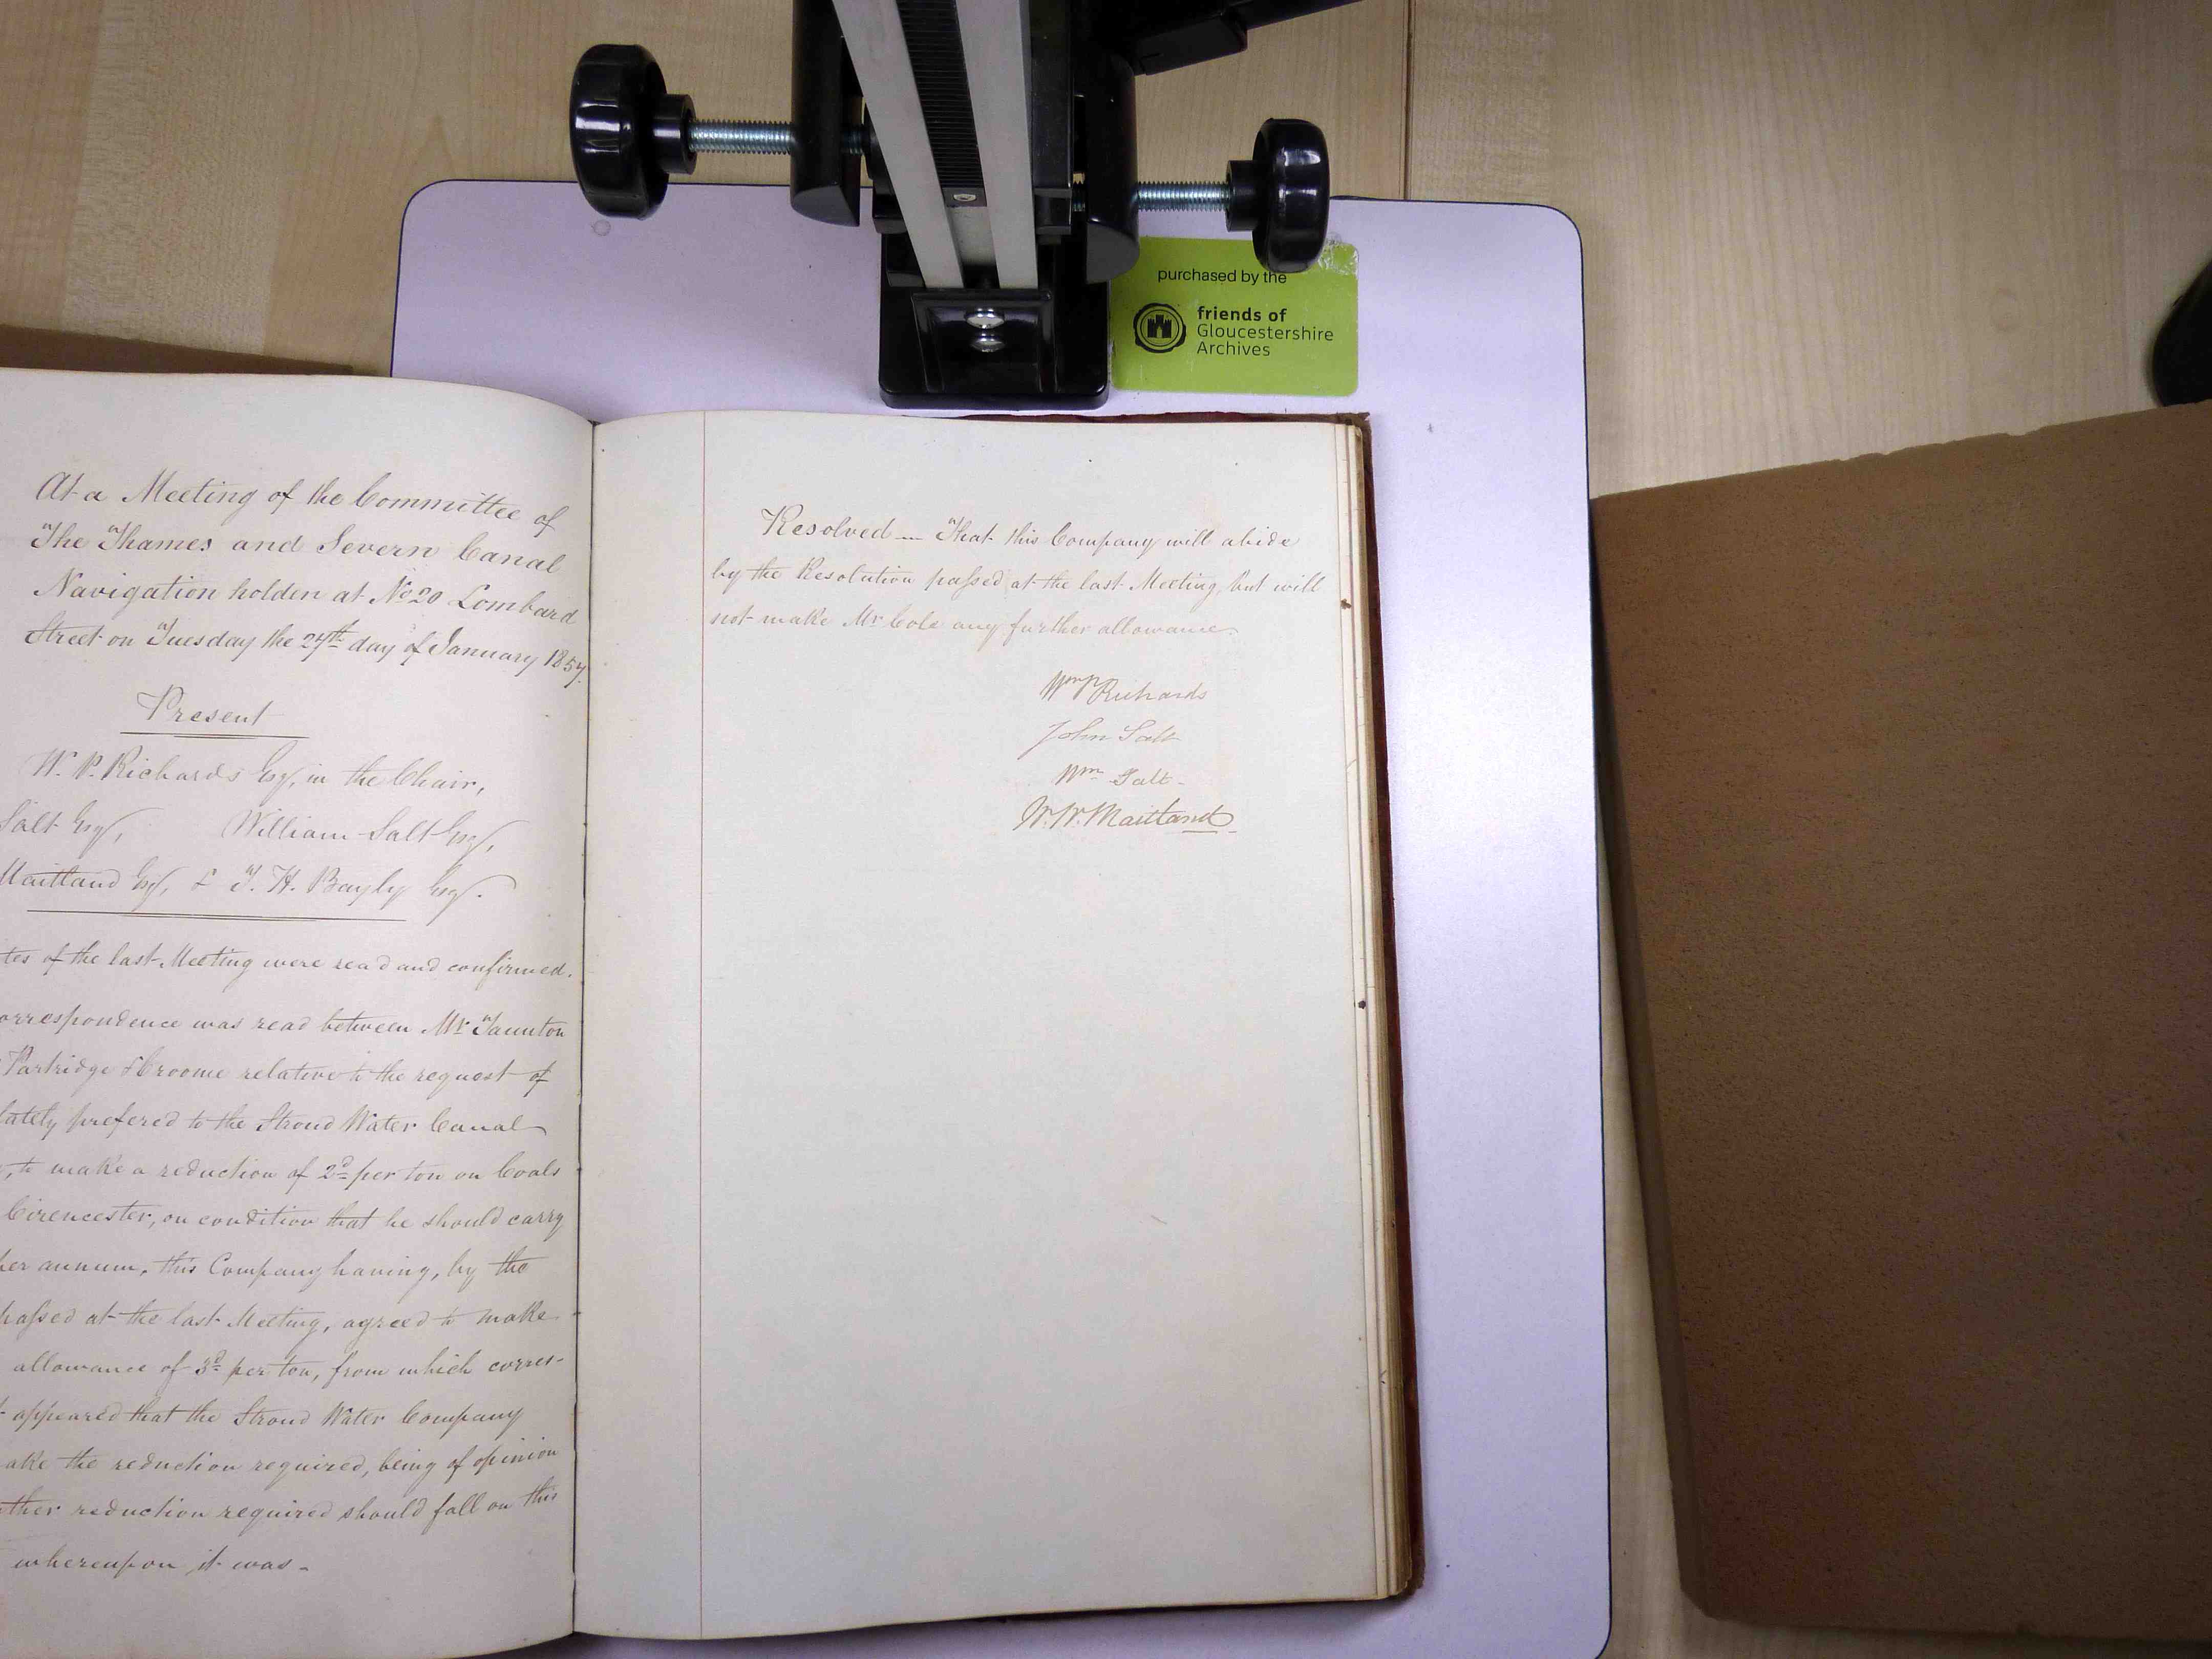 purchased by the
friends of
Gloucestershire
Archives
At a Meeting of the Committee of
The Thames and Severn Canal
Navigation holden at No 20 Lombard
Street on Tuesday the 27th day of January 1857.
Present
W. P. Richards Esq, in the Chair,
Salt Esq, William Salt Esq,
Maitland Esq, & T. H. Bayly Esq.
tes of the last Meeting were read and confirmed.
orrespondence was read between Mr Taunton
Partridge & Croome relative to the request of
lately prefered to the Stroud Water Canal
, to make a reduction of 2d per ton on Coals
Cirencester, on condition that he should carry
per annum, this Company having, by the
passed at the last Meeting, agreed to make
allowance of 3d per ton, from which corres-
t appeared that the Stroud Water Company
ake the reduction required, being of opinion
ther reduction required should fall on this
whereupon it was -
Resolved — That this Company will abide
by the Resolution passed at the last Meeting, but will
not make Mr Cole any further allowance.
Wm P Richards
John Salt
Wm Salt -
W. W. Maitland